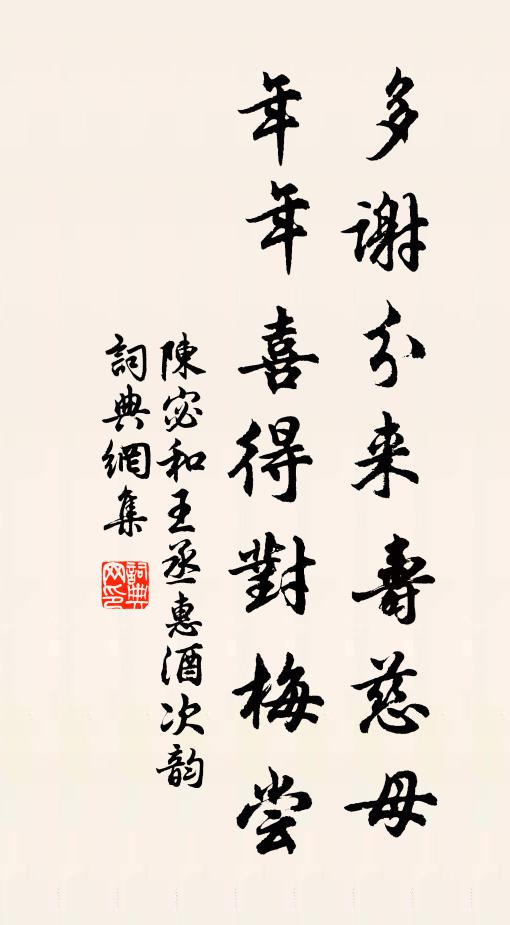 多謝分来壽慈母
年年喜得對梅尝
陳宓和王丞惠酒次韵
詞典網集
詞典网印